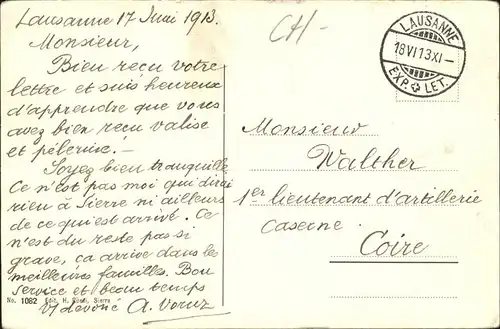 Lausanne 17 Juai 1913.
Monsieur,
Bien reçu votre
lettre et suis heureux
d'apprendre que vous
avez bien reçu valise
et pélerine. —
Soyez bien tranquille
Ce n'est pas moi qui dirai
rien à Sierre ni ailleurs
de ce qui est arrivé. Ce
n'est du reste pas si
grave, ca arrive dans les
meilleures familles. Bon
service et beau temps
V/ devoué A. Voruz
No. 1082 Edit. H. Sierre
CH-
LAUSANNE
18 VI 13 XI —
EXP. LET.
Monsieur
Walther
1er lieutenant d'artillerie
Caserne
Coire